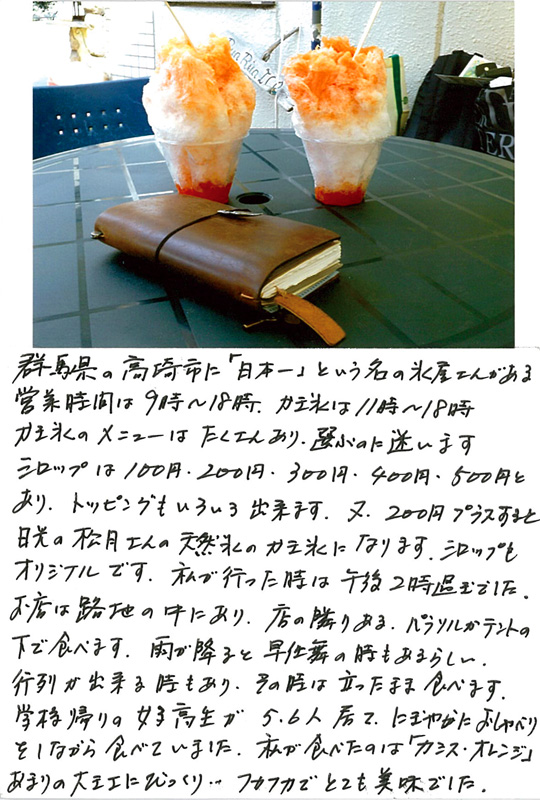 群馬県の高崎市に「日本一」という名の氷屋さんがある
営業時間は9時〜18時. カキ氷は11時〜18時
カキ氷のメニューはたくさんあり. 選ぶのに迷います
シロップは100円・200円・300円・400円・500円と
あり. トッピングもいろいろ出来ます. 又. 200円プラスすると
日光の松月さんの天然氷のカキ氷になります. シロップも
オリジナルです. 私が行った時は午後2時過ぎでした.
お店は路地の中にあり. 店の隣りある. パラソルかテントの
下で食べます. 雨が降ると早仕舞の時もあるらしい.
行列が出来る時もあり. その時は立ったまま食べます.
学校帰りの女子高生が5.6人居て. にぎやかにおしゃべり
をしながら食べていました. 私が食べたのは「カシス・オレンジ」
あまりの大キエにびっくり‥フカフカでとても美味でした.